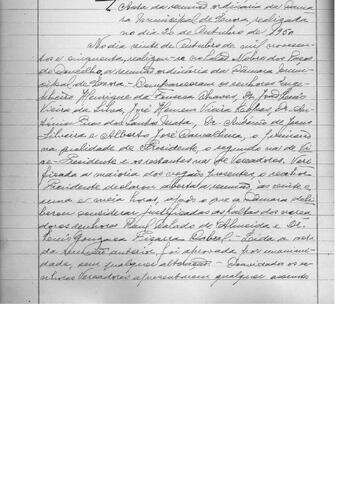 Acta da reunião ordinária da Câma-
ra Municipal de Évora, realizada
no dia 20 de Outubro de 1950
No dia vinte de Outubro de mil novecen-
tos e cinquenta, realizou-se no Salão Nobre dos Paços
do Concelho, a reunião ordinária da Câmara Muni-
cipal de Évora - Compareceram os senhores Enge-
nheiro Henrique da Fonseca Chaves, Dr. João Luís
Vieira da Silva, José Homem Vieira, Dr. An-
tónio Pires dos Santos, Dr. António de Jesus
Silveira e Alberto José Carvalheira, o primeiro
na qualidade de Presidente, o segundo na de Vi-
ce-Presidente e os restantes na de Vereadores. Veri-
ficada a maioria dos vogais presentes, o senhor
Presidente declarou aberta a reunião, às vinte e
uma e meia horas, após o que a Câmara deli-
berou considerar justificadas as faltas dos verea-
dores senhores Raul Calado de Almeida e Dr.
Luís Gonzaga Pizarra Cabral - Lida a acta
da reunião anterior, foi aprovada por unanimi-
dade, sem qualquer alteração - Convidados os se-
nhores Vereadores a apresentarem qualquer assunto